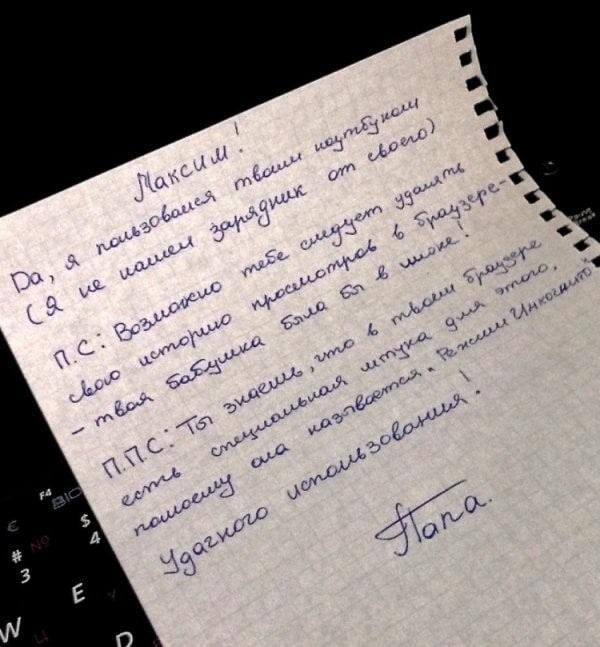 Максим!
Да, я пользовался твоим ноутбуком
(Я не нашел зарядник от своего)
П.С: Возможно тебе следует удалять
свою историю просмотров в браузере-
- твоя бабушка была бы в шоке!
П.П.С: Ты знаешь, что в твоём браузере
есть специальная штука для этого,
помоему она называется „Режим Инкогнито"
Удачного использования!
Папа.
F4
BIO
€
$
#
NO
4
3
W
Ц
E
У
D